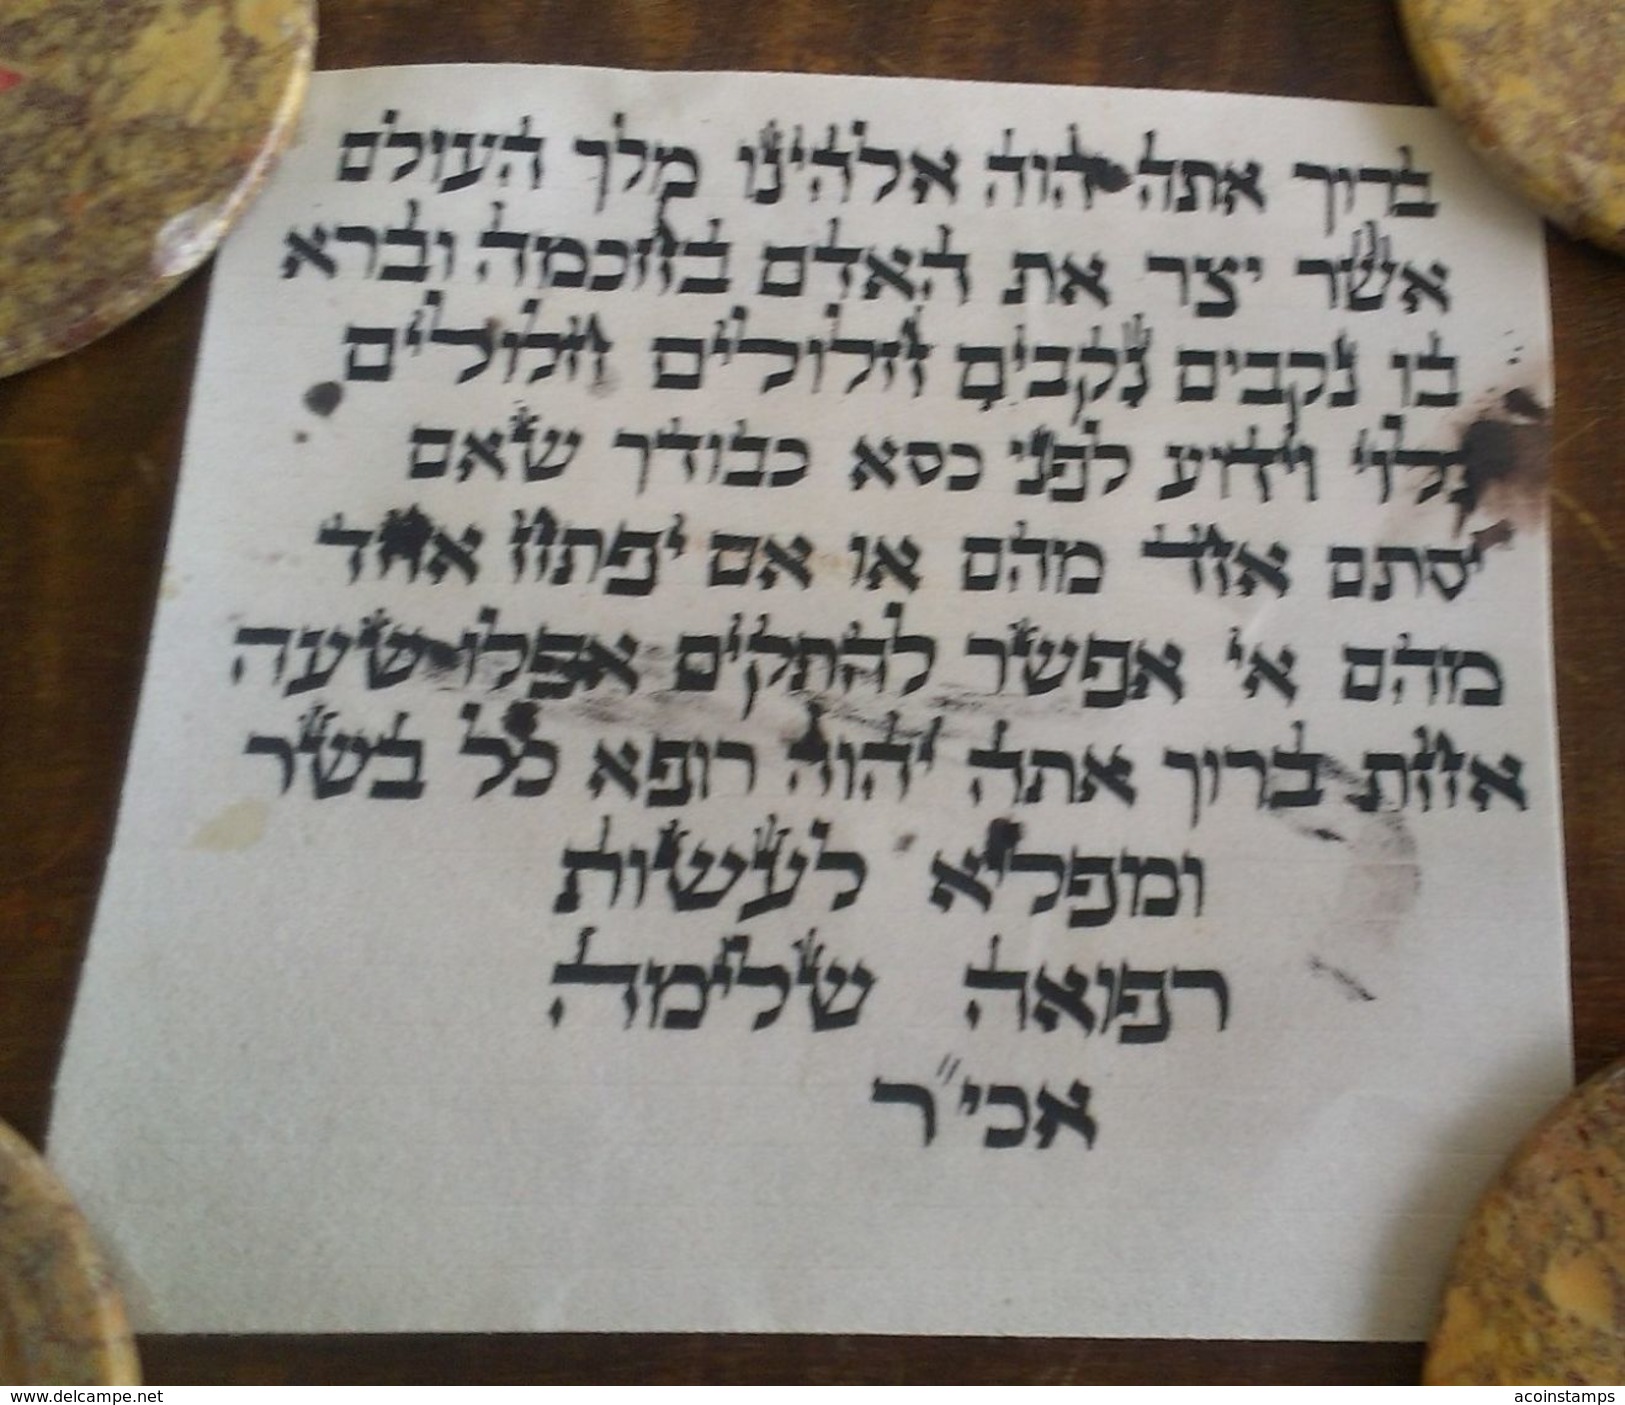 ברוך אתה יהוה אלהינו מלך העולם
אשר יצר את האדם בחכמה וברא
בו נקבים נקבים חלולים חלולים
גלוי וידוע לפני כסא כבודך שאם
יסתם אחד מהם או אם יפתח אחד
מהם אי אפשר להתקים אפלו שעה
אחת ברוך אתה יהוה רופא כל בשר
ומפליא לעשות
רפואה שלימה
אכי״ר
www.delcampe.net
acoinstamps